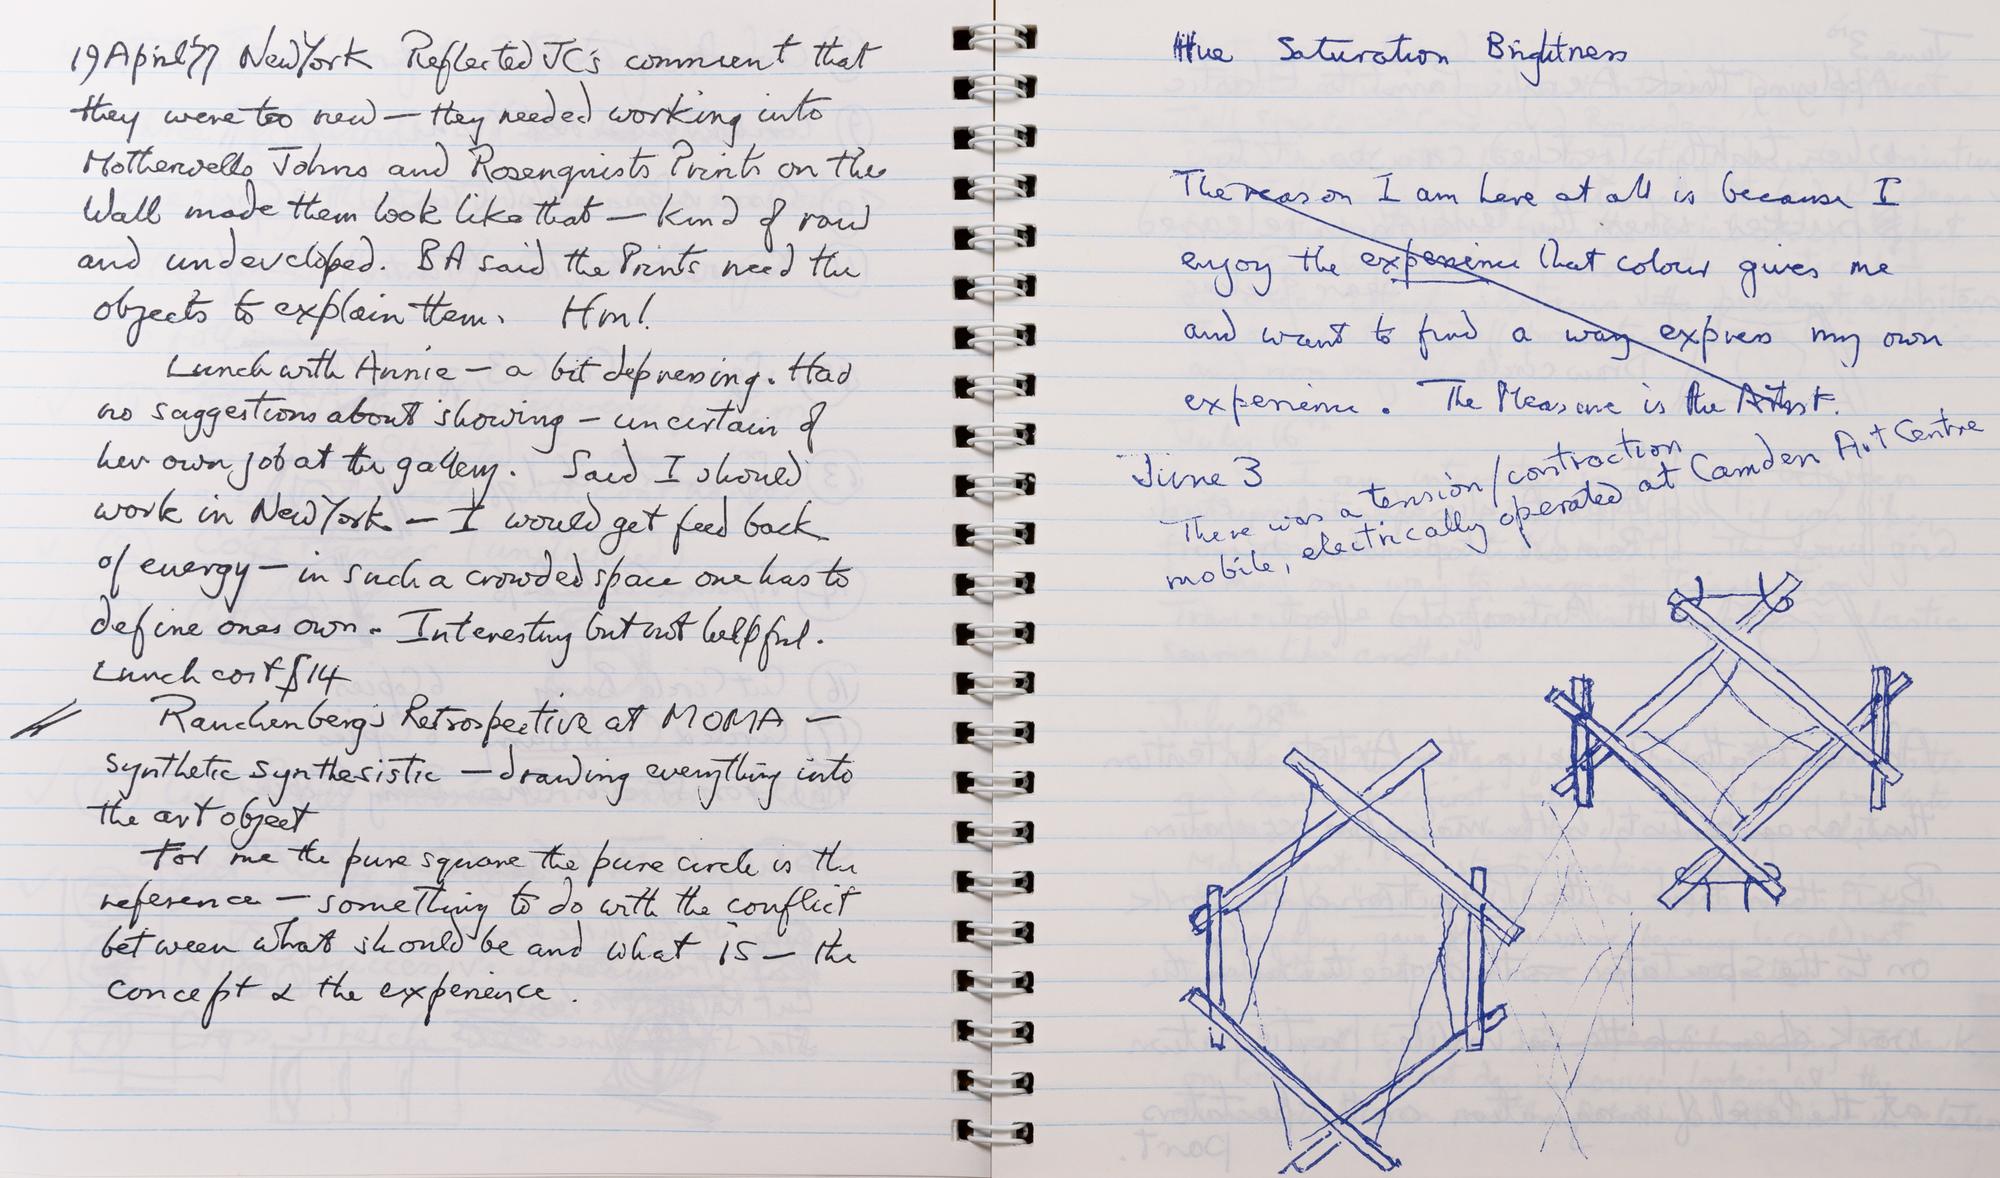 19 April '77 New York Reflected JC's comment that
they were too new — they needed working into
Motherwells Johns and Rosenquists Prints on the
Wall made them look like that — kind of raw
and undeveloped. BA said the Prints need the
objects to explain them. Hm!
Lunch with Annie — a bit depressing. Had
no suggestions about showing — uncertain of
her own job at the gallery. Said I should
work in New York — I would get feed back
of energy — in such a crowded space one has to
define ones own. Interesting but not helpful.
Lunch cost $14
Rauchenberg's Retrospective at MOMA —
synthetic synthesistic — drawing everything into
the art object
For me the pure square the pure circle is the
reference — something to do with the conflict
between what should be and what is — the
concept & the experience.
Hue Saturation Brightness
The reason I am here at all is because I
enjoy the experience that colour gives me
and want to find a way express my own
experience. The Measure is the Artist.
June 3
There was a tension/contraction
mobile, electrically operated at Camden Art Centre